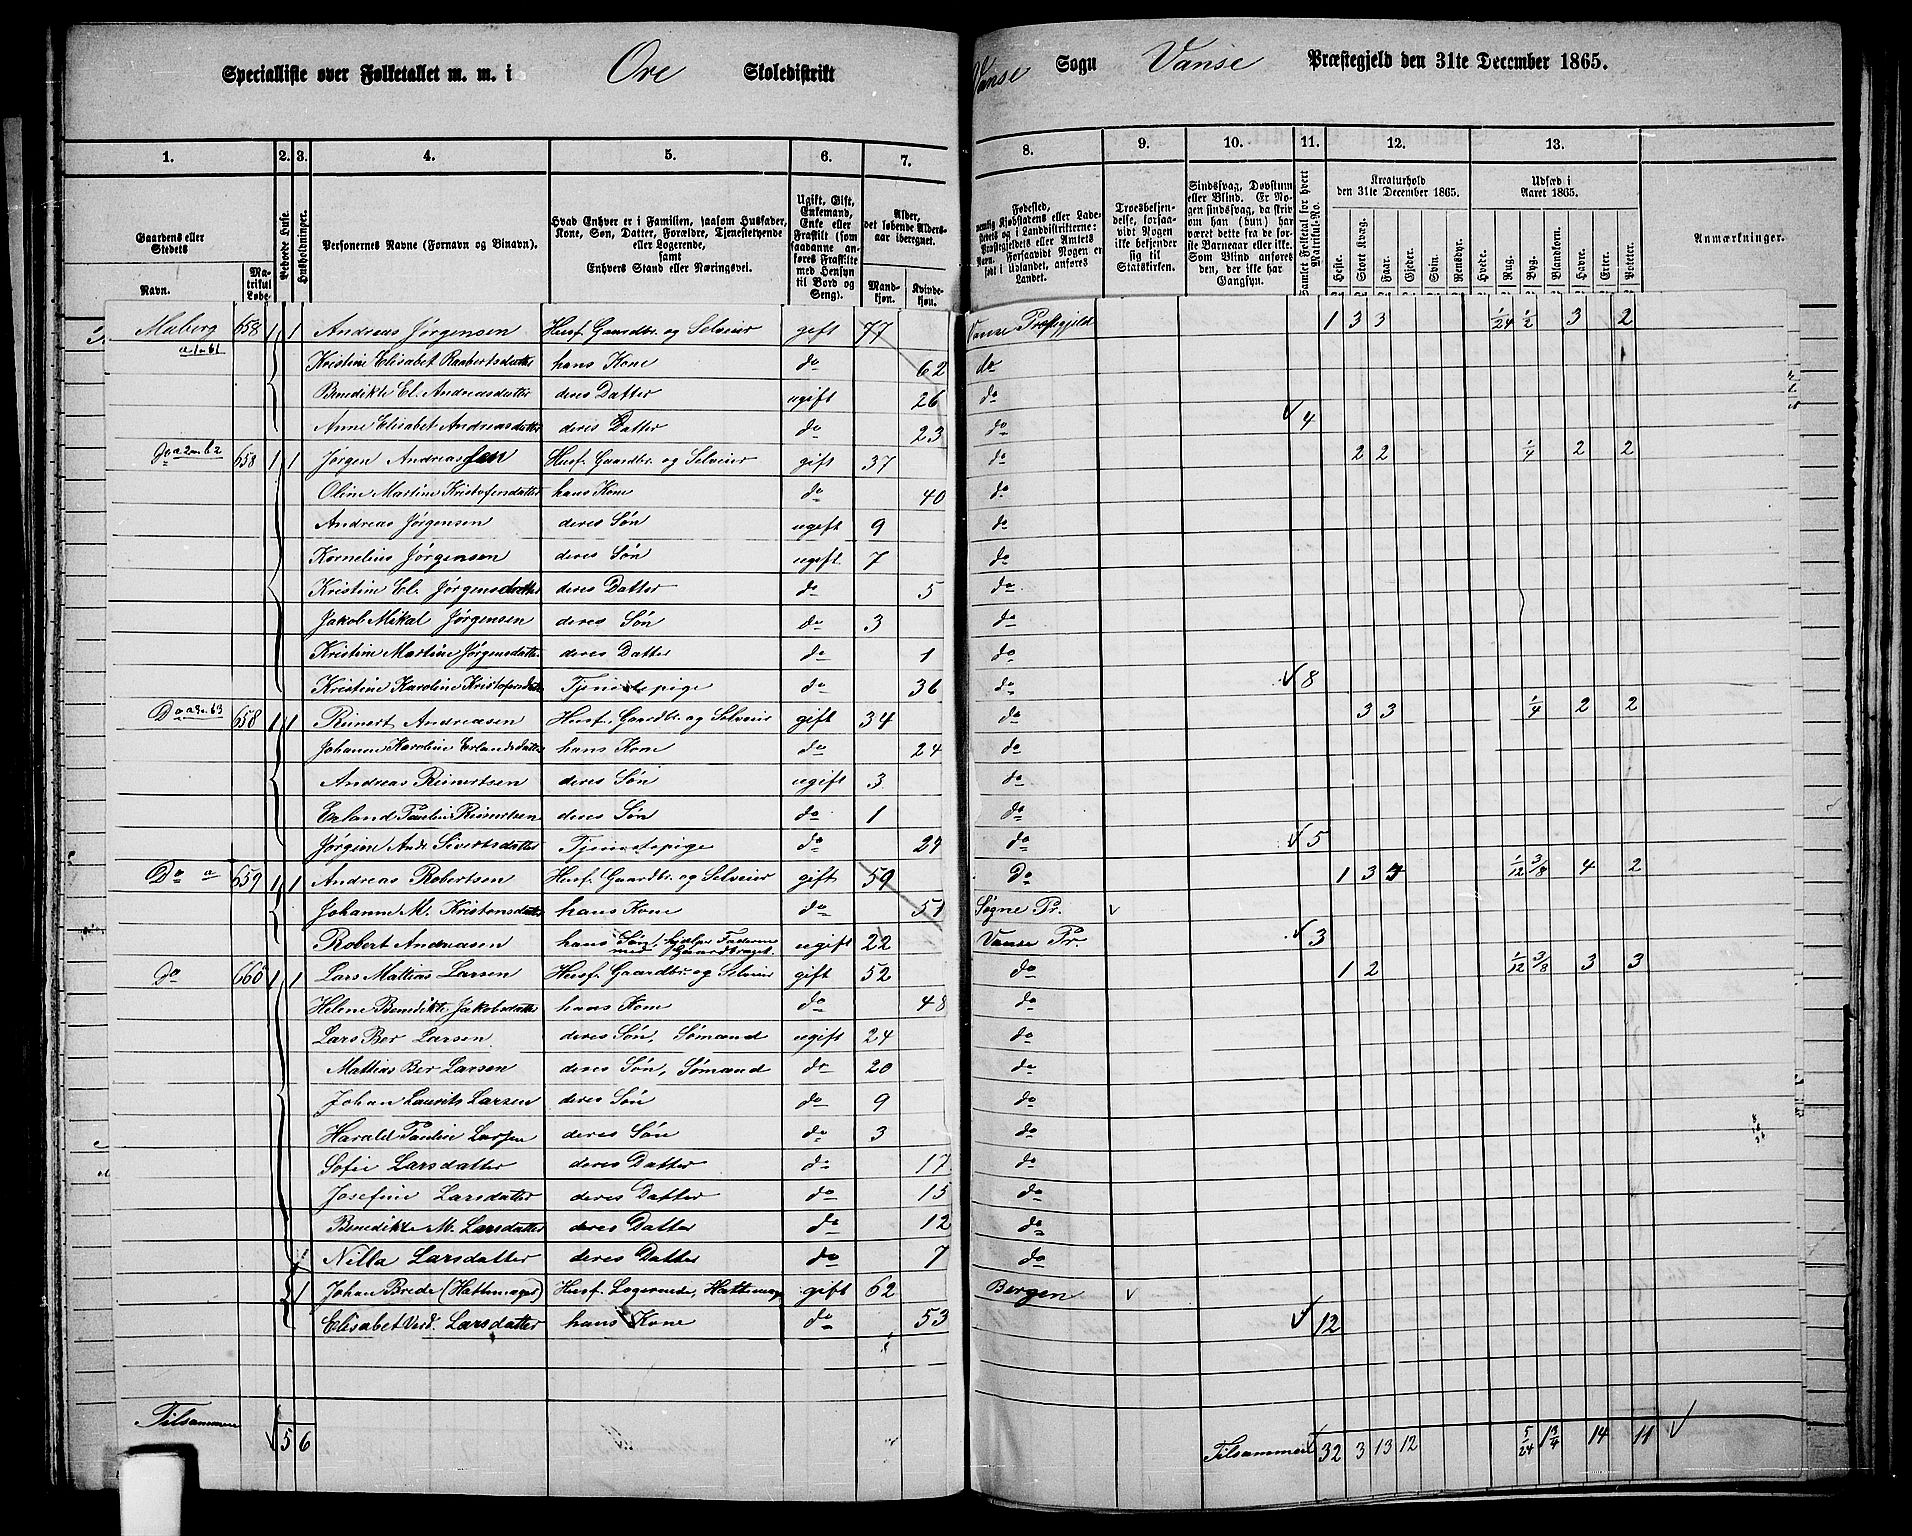 Specialliste over Folketallet m. m. i Ore Skoledistrikt Vanse Sogn Vanse Præstegjeld den 31te December 1865.
1. 2. 3. 4. 5. 6. 7. 8. 9. 10. 11. 12. 13.
Gaardens eller Stedets
Navn.
Matrikul Løbe
Beboede Huse.
Husholdninger.
Personernes Navne (Fornavn og Binavn).
Hvad Enhver er i Familien, saasom Husfader, Kone, Søn, Datter, Forældre, Tjenestetyende eller Logerende, samt Enhvers Stand eller Næringsvei.
Ugift, Gift, Enkemand, Enke eller Fraskilt (som saadanne anføres Fraskilte med Hensyn til Bord og Seng).
Alder, det løbende Aldersaar iberegnet.
Mandkjøn. Kvindekjøn.
Fødested, nemlig Kjøbstadens eller Ladestedets og i Landdistrikterne: Præstegjeldets eller Amtets Navn. Forsaavidt Nogen er født i Udlandet, anføres Landet.
Troesbekjendelse, forsaavidt Nogen ikke bekjender sig til Statskirken.
Sindssvag, Døvstum eller Blind. Er Nogen sindssvag, da skriv om han (hun) har været dette fra de første Barneaar eller ikke. Som Blind anføres den, der ikke har Gangsyn.
Samlet Folketal for hvert Matrikul-No.
Kreaturhold den 31te December 1865.
Heste. Stort Kvæg. Faar. Gjeder. Svin. Rensdyr.
Udsæd i Aaret 1865.
Hvede. Rug. Byg. Blandkorn. Havre. Erter. Poteter.
Anmærkninger.
Maberg 658 1 1 Andreas Jørgensen Husf. Gaardbr. og Selveier gift 77 Vanse Præstegjeld 1 3 3 1/24 1/2 3 2
Kristine Elisabet Raabertsdatter hans Kone do 62 do
Benedikte El. Andreasdatter deres Datter ugift 26 do
Anne Elisabet Andreasdatter deres Datter do 23 do 4
Do 658 1 1 Jørgen Andreassen Husf. Gaardbr. og Selveier gift 37 do 2 2 1/4 2 2
Oline Martine Kristofersdatter hans Kone do 40 do
Andreas Jørgensen deres Søn ugift 9 do
Kornelius Jørgensen deres Søn ugift 7 do
Kristine El. Jørgensdatter deres Datter do 5 do
Jakob Mikal Jørgensen deres Søn do 3 do
Kristine Martine Jørgensdatter deres Datter do 1 do
Kristine Karoline Kristofersdatter Tjenestepige do 36 do 8
Do 658 1 1 Reinert Andreasen Husf. Gaardbr. og Selveier gift 34 do 3 3 1/4 2 2
Johanne Karoline Erlandsdatter hans Kone do 24 do
Andreas Reinertsen deres Søn ugift 3 do
Erland Paulin Reinertsen deres Søn do 1 do
Jørgine Andr Sivertsdatter Tjenestepige do 29 do 5
Do a 659 1 1 Andreas Robertsen Husf. Gaardbr. og Selveier gift 59 Do 1 3 1/12 3/8 4 2
Johanne M. Kristensdatter hans Kone do 51 Søgne Pr.
Robert Andreasen hans Søn, hjælper Faderen med Gaardbruget ugift 22 Vanse Pr. 3
Do 660 1 1 Lars Mattias Larsen Husf. Gaardbr. og Selveier gift 52 do 1 2 1/12 3/8 3 3
Helene Benedikte Jakobsdatter hans Kone do 48 do
Lars Ber Larsen deres Søn, Sømand ugift 24 do
Mattias Ber Larsen deres Søn, Sømand do 20 do
Johan Laurits Larsen deres Søn do 9 do
Harald Paulin Larsen deres Søn do 3 do
Sofie Larsdatter deres Datter do 17 do
Josefine Larsdatter deres Datter do 15 do
Benedikte M. Larsdatter deres Datter do 12 do
Nilla Larsdatter deres Datter do 7 do
1 Johan Brede (Hattemager) Husf. Logerende, Hattemager gift 62 Bergen
Elisabet Larsdatter hans Kone do 53 12
Tilsammen 5 6 Tilsammen 32 3 13 12 5/24 1 3/4 14 11